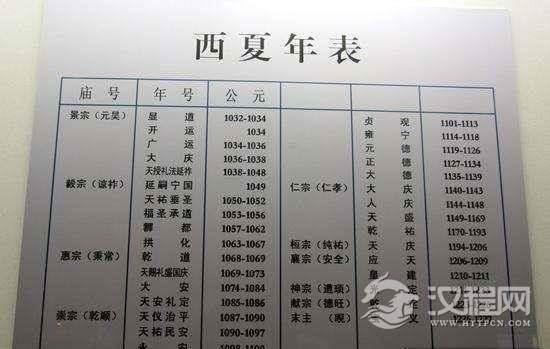 西夏年表
庙号 年号 公元
景宗（元昊） 显道 1032-1034
开运 1034
广运 1034-1036
大庆 1036-1038
天授礼法延祚 1038-1048
毅宗（谅祚） 延嗣宁国 1049
天祐垂圣 1050-1052
福圣承道 1053-1056
奲都 1057-1062
拱化 1063-1067
惠宗（秉常） 乾道 1068-1069
天赐礼盛国庆 1069-1073
大安 1074-1084
天安礼定 1085-1086
崇宗（乾顺） 天仪治平 1087-1090
天祐民安 1090-1097
永安
贞观 1101-1113
雍宁 1114-1118
元德 1119-1126
正德 1127-1134
大德 1135-1139
仁宗（仁孝） 大庆 1140-1143
人庆 1144-1148
天盛 1149-1169
乾祐 1170-1193
桓宗（纯祐） 天庆 1194-1206
襄宗（安全） 应天 1206-1209
皇建 1210-1211
神宗（遵顼） 定
献宗（德旺）
末主（晛） 义
汉程网
HTTPCN.COM